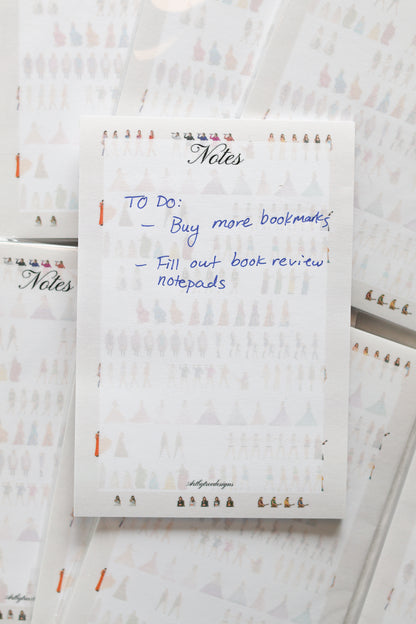 Notes
TO DO:
– Buy more bookmarks
– Fill out book review
notepads
Artbytreedesigns
Notes